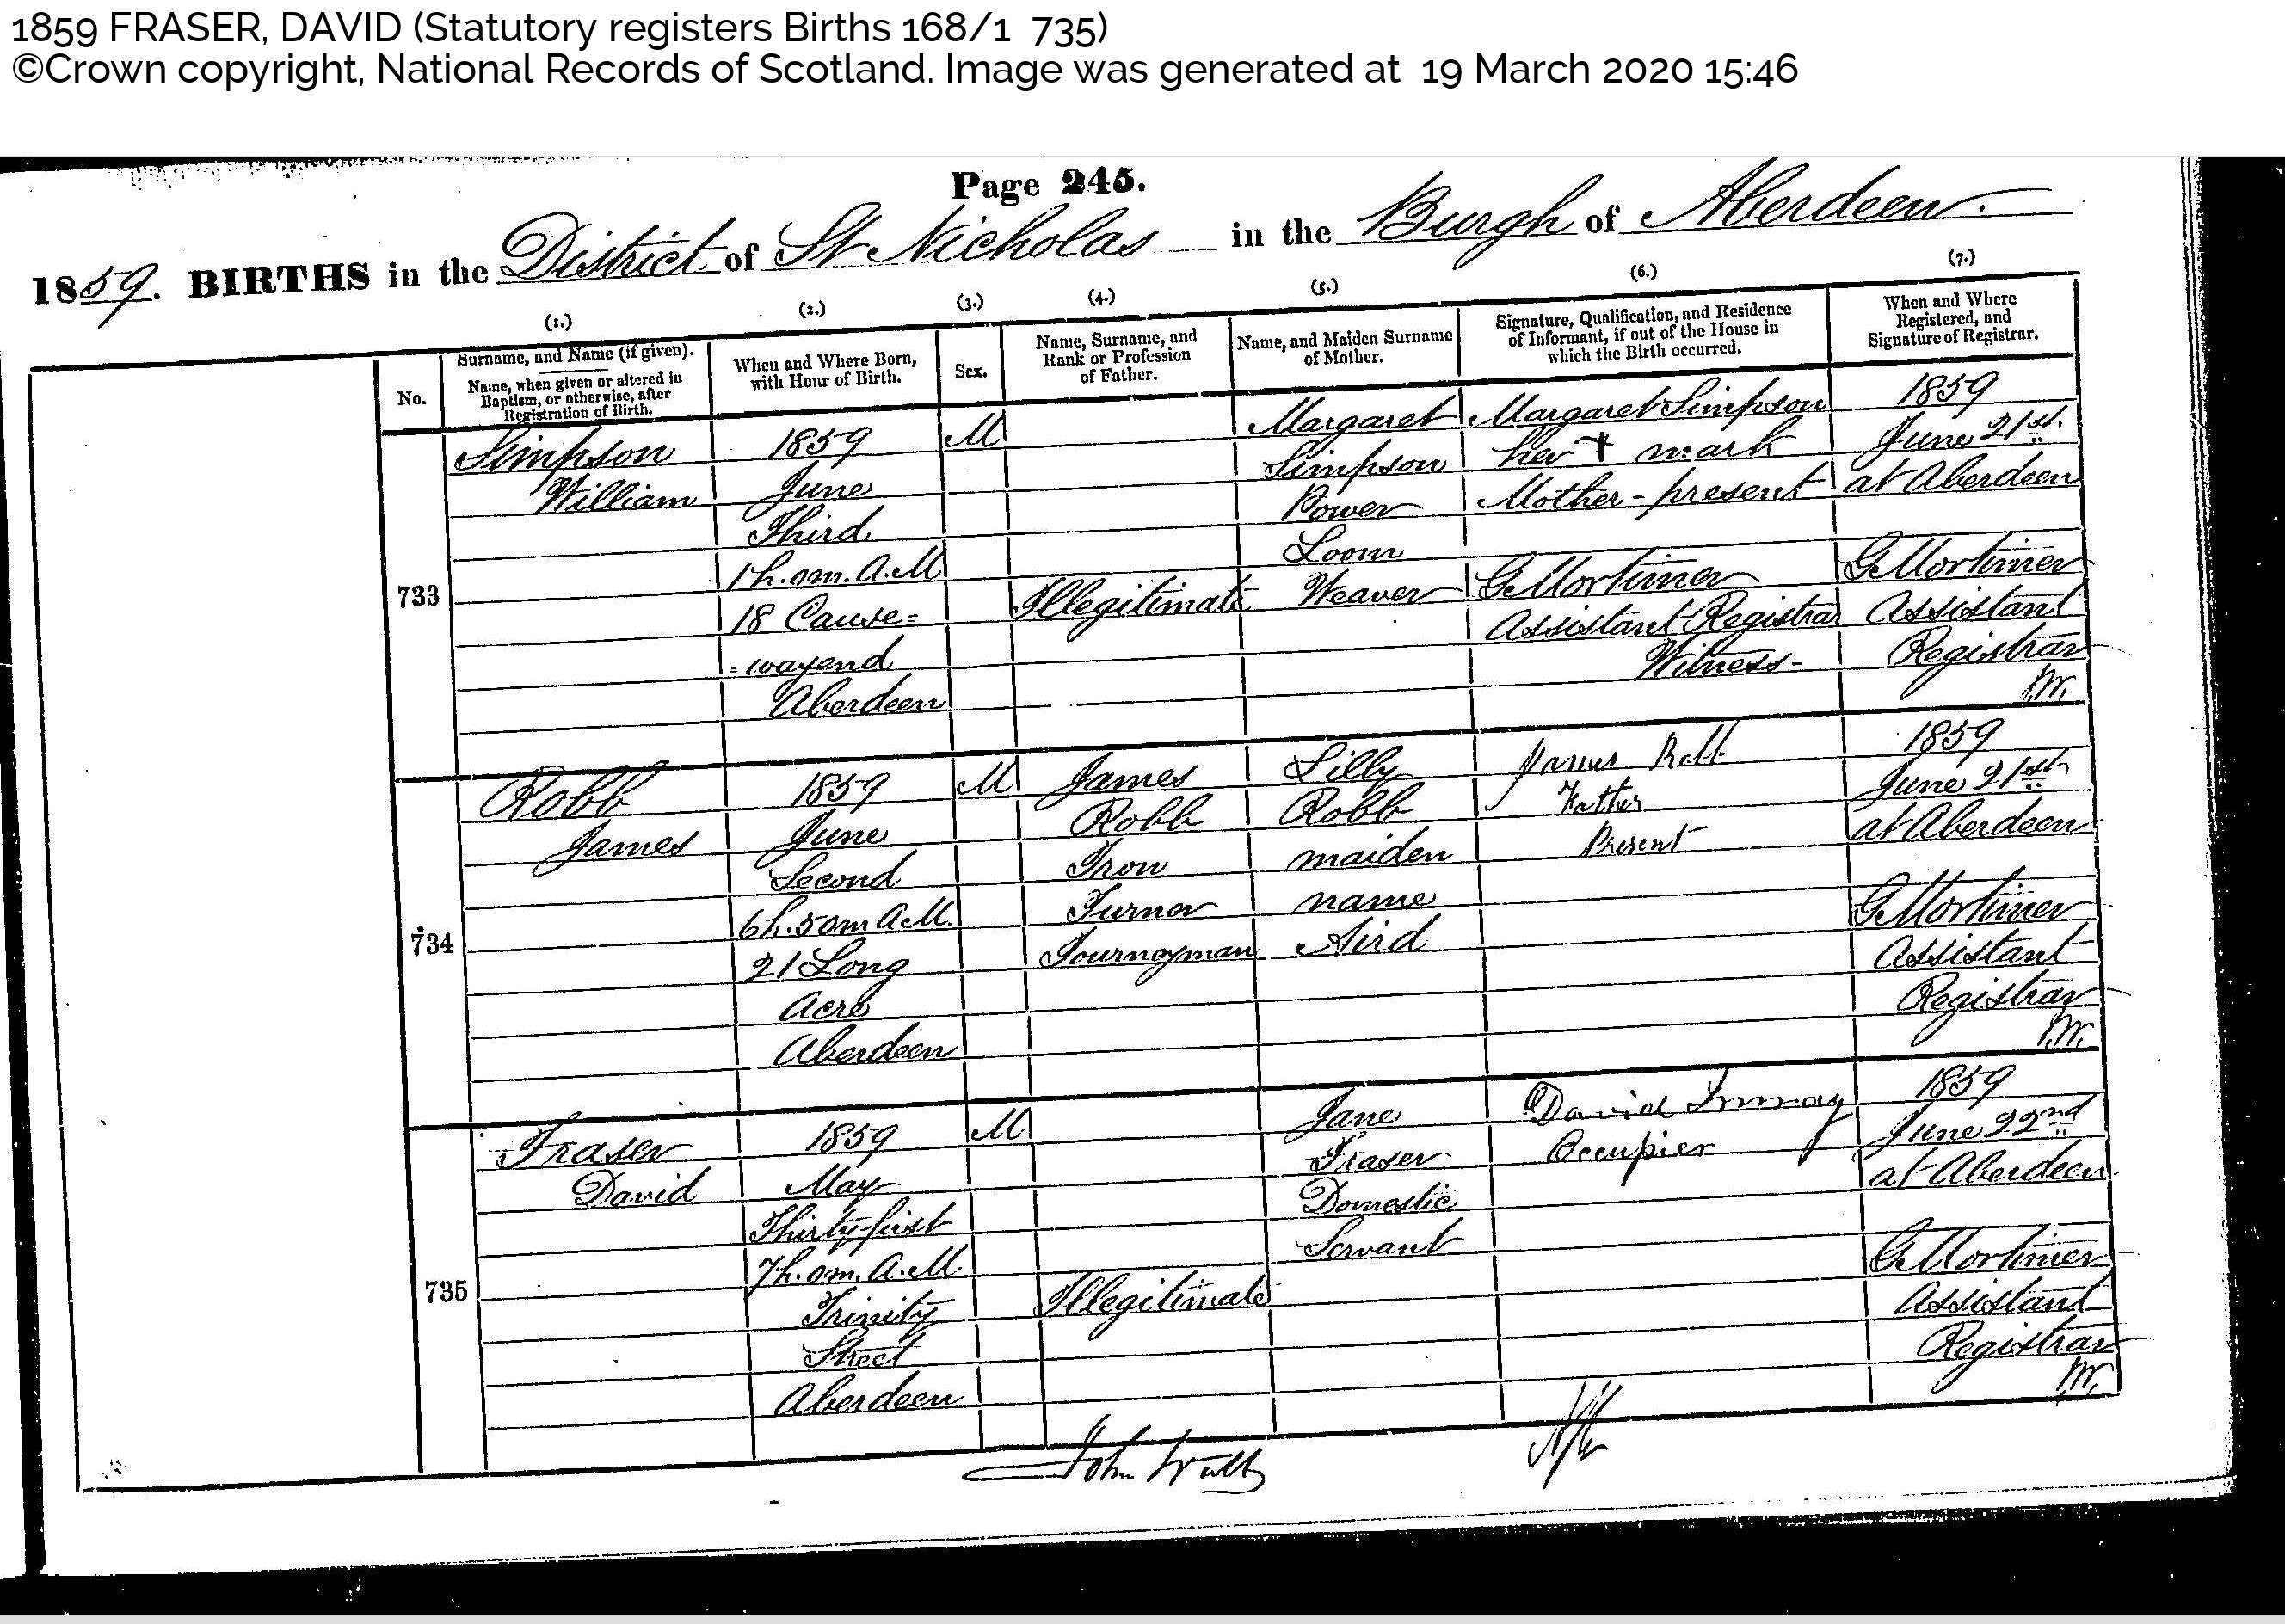 1859 FRASER, DAVID (Statutory registers Births 168/1 735)
©Crown copyright, National Records of Scotland. Image was generated at 19 March 2020 15:46
Page 245.
1859. BIRTHS in the District of St Nicholas in the Burgh of Aberdeen.
(1.) (2.) (3.) (4.) (5.) (6.) (7.)
No.
Surname, and Name (if given).
Name, when given or altered in
Baptism, or otherwise, after
Registration of Birth.
When and Where Born,
with Hour of Birth.
Sex.
Name, Surname, and
Rank or Profession
of Father.
Name, and Maiden Surname
of Mother.
Signature, Qualification, and Residence
of Informant, if out of the House in
which the Birth occurred.
When and Where
Registered, and
Signature of Registrar.
733
Simpson
William
1859
June
Third
1h. 0m. A.M
18 Cause=
=wayend
Aberdeen
M
Illegitimate
Margaret
Simpson
Power
Loom
Weaver
Margaret Simpson
her + mark
Mother - present
G Mortimer
Assistant Registrar
Witness-
1859
June 21st.
at Aberdeen
G Mortimer
Assistant
Registrar
734
Robb
James
1859
June
Second
6h. 50m A.M.
21 Long
Acre
Aberdeen
M
James
Robb
Iron
Turner
Journeyman
Lilly
Robb
maiden
name
Aird
James Robb
Father
Present
1859
June 21st
at Aberdeen
G Mortimer
Assistant
Registrar
735
Fraser
David
1859
May
Thirty-first
7h. 0m. A.M.
Trinity
Street
Aberdeen
M
Illegitimate
Jane
Fraser
Domestic
Servant
David Immay
Occupier
1859
June 22nd
at Aberdeen
G Mortimer
Assistant
Registrar
John Watt